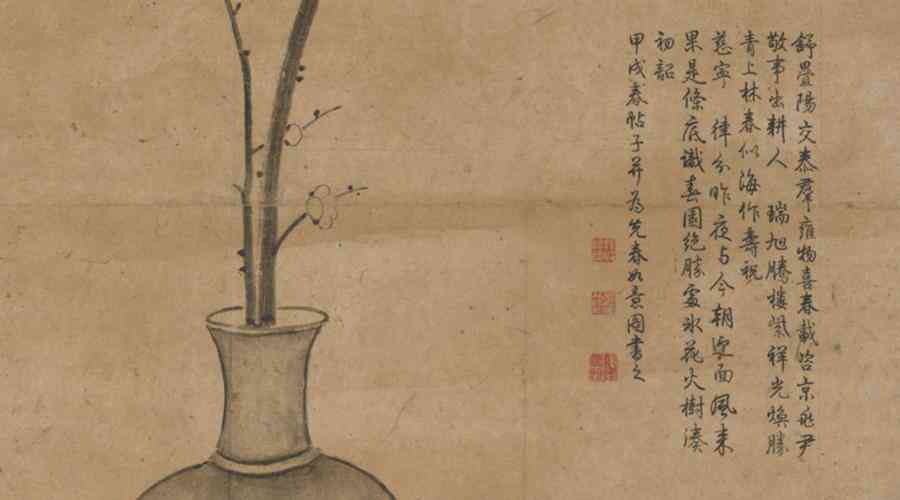 舒疊陽交泰羣雍物喜春載咨京兆尹
敬事出耕人 瑞旭騰樓紫祥光煥勝
青上林春似海作壽祝
慈寧 律分昨夜与今朝迎面風来
果是條底識園絶勝處氷花火樹湊
初韶
甲戌春帖子并為先春如意圖書之